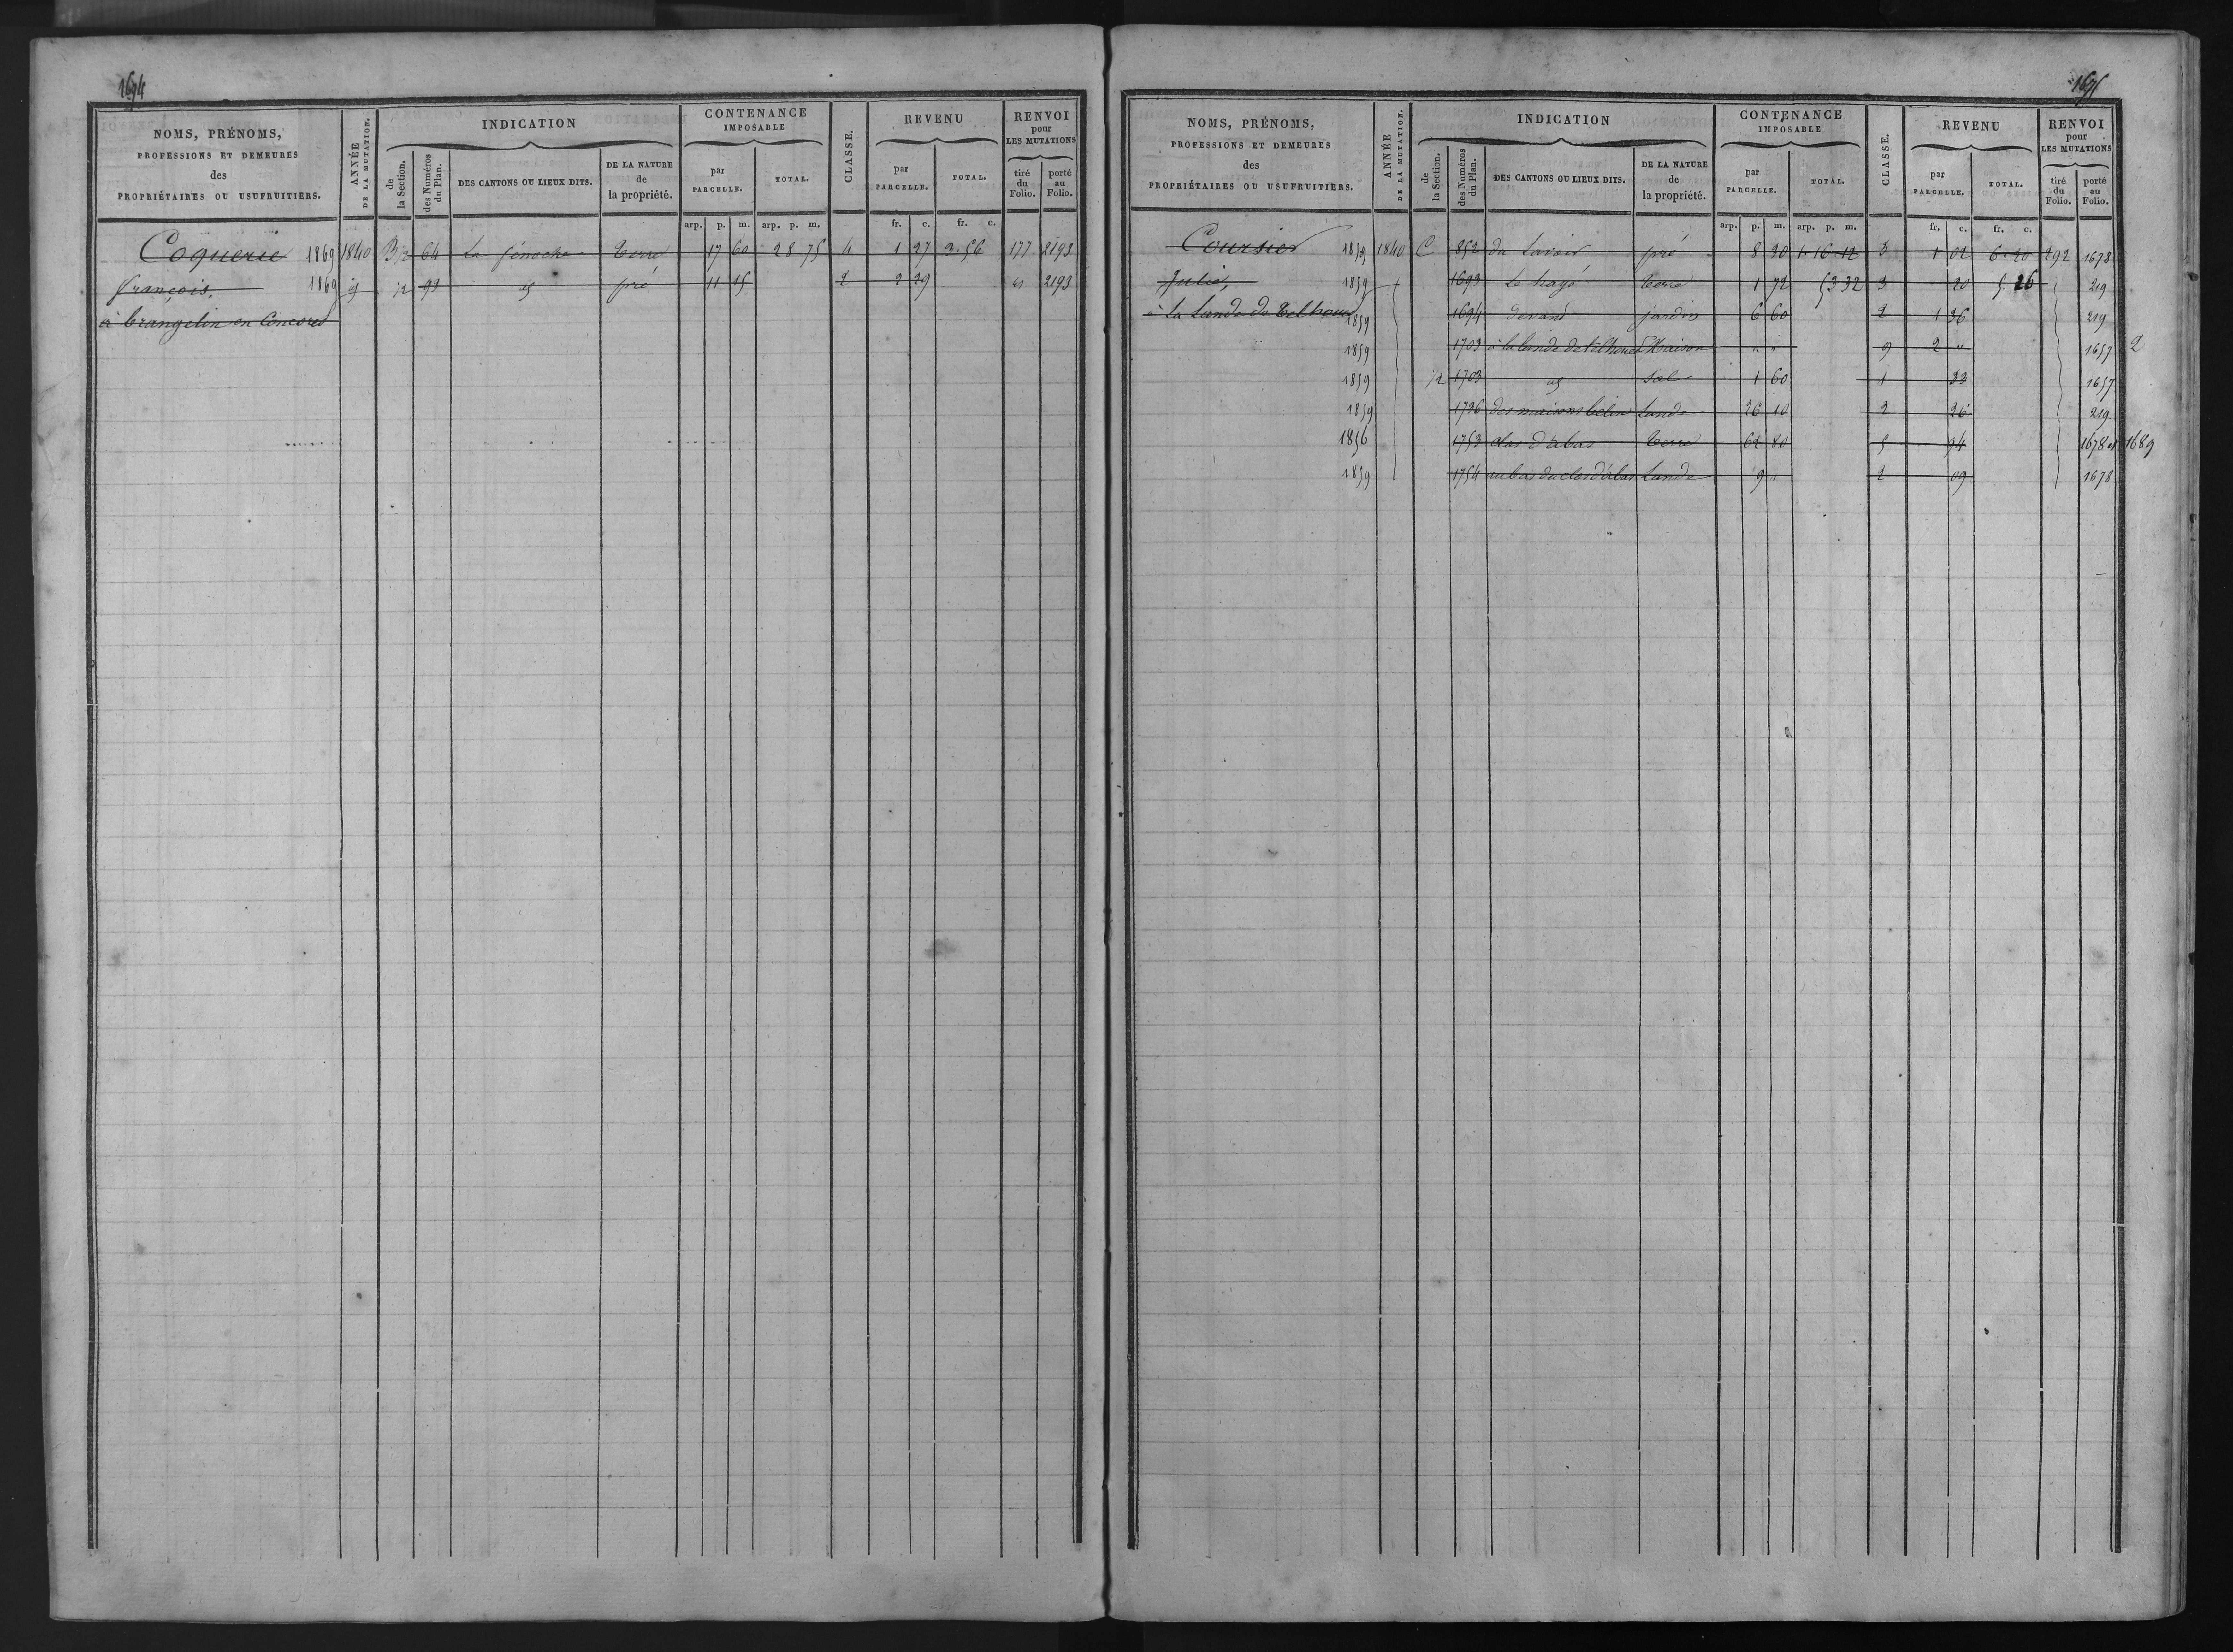 1694
NOMS, PRÉNOMS, PROFESSIONS ET DEMEURES des PROPRIÉTAIRES OU USUFRUITIERS.
ANNÉE DE LA MUTATION.
INDICATION
de la Section.
des Numéros du Plan.
DES CANTONS OU LIEUX DITS.
DE LA NATURE de la propriété.
CONTENANCE IMPOSABLE
par PARCELLE.
TOTAL.
CLASSE.
REVENU
par PARCELLE.
TOTAL.
RENVOI pour LES MUTATIONS
tiré du Folio.
porté au Folio.
arp. p. m. arp. p. m. fr. c. fr. c.
Coquerie 1869 1840 B 1/2 64 La Génoche terre 17 60 28 75 4 1 27 3.56 177 2193
François. 1869 id 1/2 93 id pré 11 15 2 2 29 id 2193
à trangelin en Concoret
1695
NOMS, PRÉNOMS, PROFESSIONS ET DEMEURES des PROPRIÉTAIRES OU USUFRUITIERS.
ANNÉE DE LA MUTATION.
INDICATION
de la Section.
des Numéros du Plan.
DES CANTONS OU LIEUX DITS.
DE LA NATURE de la propriété.
CONTENANCE IMPOSABLE
par PARCELLE.
TOTAL.
CLASSE.
REVENU
par PARCELLE.
TOTAL.
RENVOI pour LES MUTATIONS
tiré du Folio.
porté au Folio.
arp. p. m. arp. p. m. fr. c. fr. c.
Coursier 1859 1840 C 852 du Lavoir pré 8 30 1.16.12 3 1 02 6.20 292 1678
Julie, 1859 1693 Le hayé terre 1 72 53 32 3 20 5.26 219
à la Lande de Telhouet 1859 1694 devant jardin 6 60 2 1 36 219
1859 1703 à la lande de telhouet Maison " " 9 2 " 1657 2
1859 1/2 1703 id sol 1 60 1 33 1657
1859 1736 des maisons bélin Lande 26 10 2 26 219
1856 1753 clos d'abas terre 62 80 5 94 1678 et 1689
1859 1754 au bas du clos d'abas Lande 9 " 2 09 1678